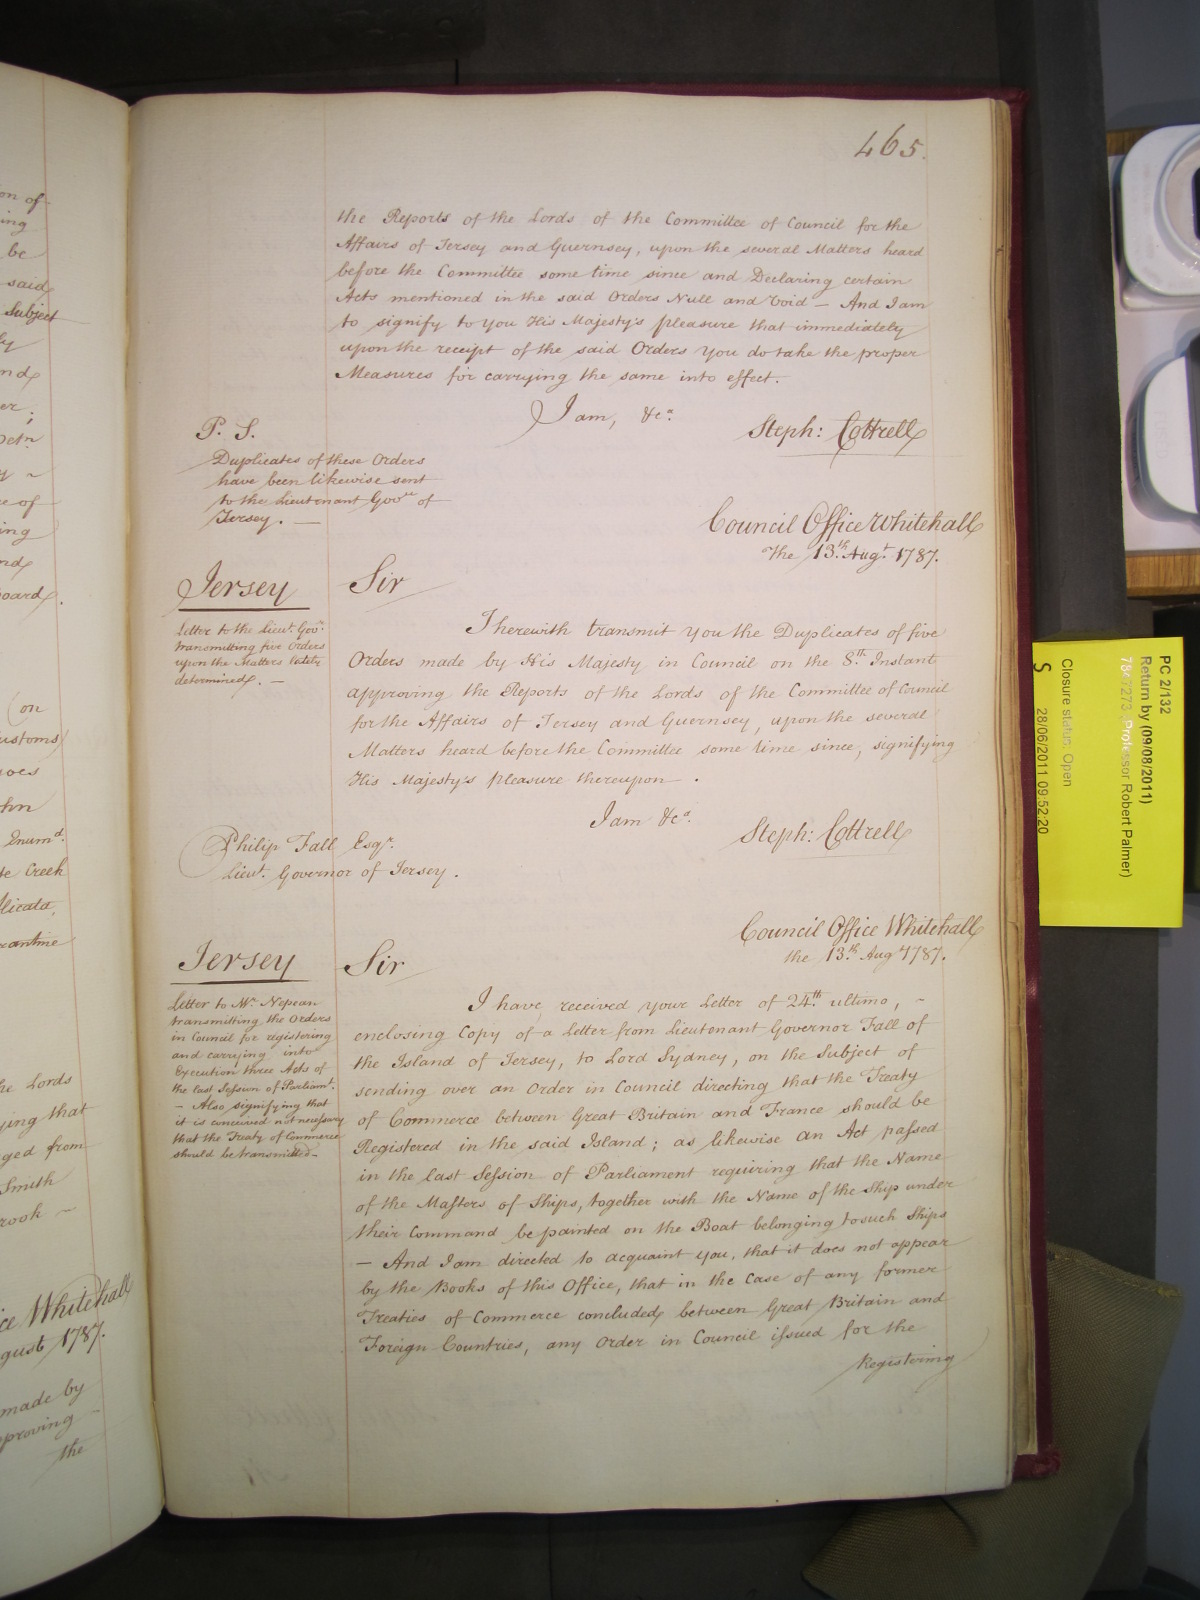 465.
the Reports of the Lords of the Committee of Council for the
Affairs of Jersey and Guernsey, upon the several Matters heard
before the Committee some time since and Declaring certain
Acts mentioned in the said Orders Null and Void — And I am
to signify to you His Majesty's pleasure that immediately
upon the receipt of the said Orders You do take the proper
Measures for carrying the same into effect.
I am, &ca.
Steph: Cottrell
P. S.
Duplicates of these Orders
have been likewise sent
to the Lieutenant Govr of
Jersey. —
Council Office Whitehall
The 13th Augt 1787.
Jersey
Sir
Letter to the Lieut. Govr.
transmitting five Orders
upon the Matters lately
determined. —
I herewith transmit you the Duplicates of five
Orders made by His Majesty in Council on the 8th Instant
approving the Reports of the Lords of the Committee of Council
for the Affairs of Jersey and Guernsey, upon the several
Matters heard before the Committee some time since, signifying
His Majesty's pleasure thereupon.
I am &ca.
Steph: Cottrell
Philip Fall Esqr.
Lieut. Governor of Jersey.
Council Office Whitehall
the 13th Aug 1787.
Jersey
Sir
Letter to Mr. Nepean
transmitting the Orders
in Council for registering
and carrying into
Execution three Acts of
the last Session of Parliamt.
— Also signifying that
it is conceived not necessary
that the Treaty of Commerce
should be transmitted —
I have received your Letter of 24th ultimo, ~
enclosing Copy of a Letter from Lieutenant Governor Fall of
the Island of Jersey, to Lord Sydney, on the Subject of
sending over an Order in Council directing that the Treaty
of Commerce between Great Britain and France should be
Registered in the said Island; as likewise an Act passed
in the last Session of Parliament requiring that the Name
of the Masters of Ships, together with the Name of the Ship under
their Command be painted on the Boat belonging to such Ships
— And I am directed to acquaint you, that it does not appear
by the Books of this Office, that in the Case of any former
Treaties of Commerce concluded between Great Britain and
Foreign Countries, any Order in Council issued for the
Registering
on of
ing
be
said
Subject
nd
er;
y ~
e of
ing
nd
oard.
(on
ustoms)
hn
Enumd.
te Creek
licata,
rantine
he Lords
ying that
ged from
Smith
rook ~
ce Whitehall
gust 1787.
made by
pproving
the
PC 2/132
Return by (09/08/2011)
7847273 (Professor Robert Palmer)
Closure status: Open
S 28/06/2011 09:52:20